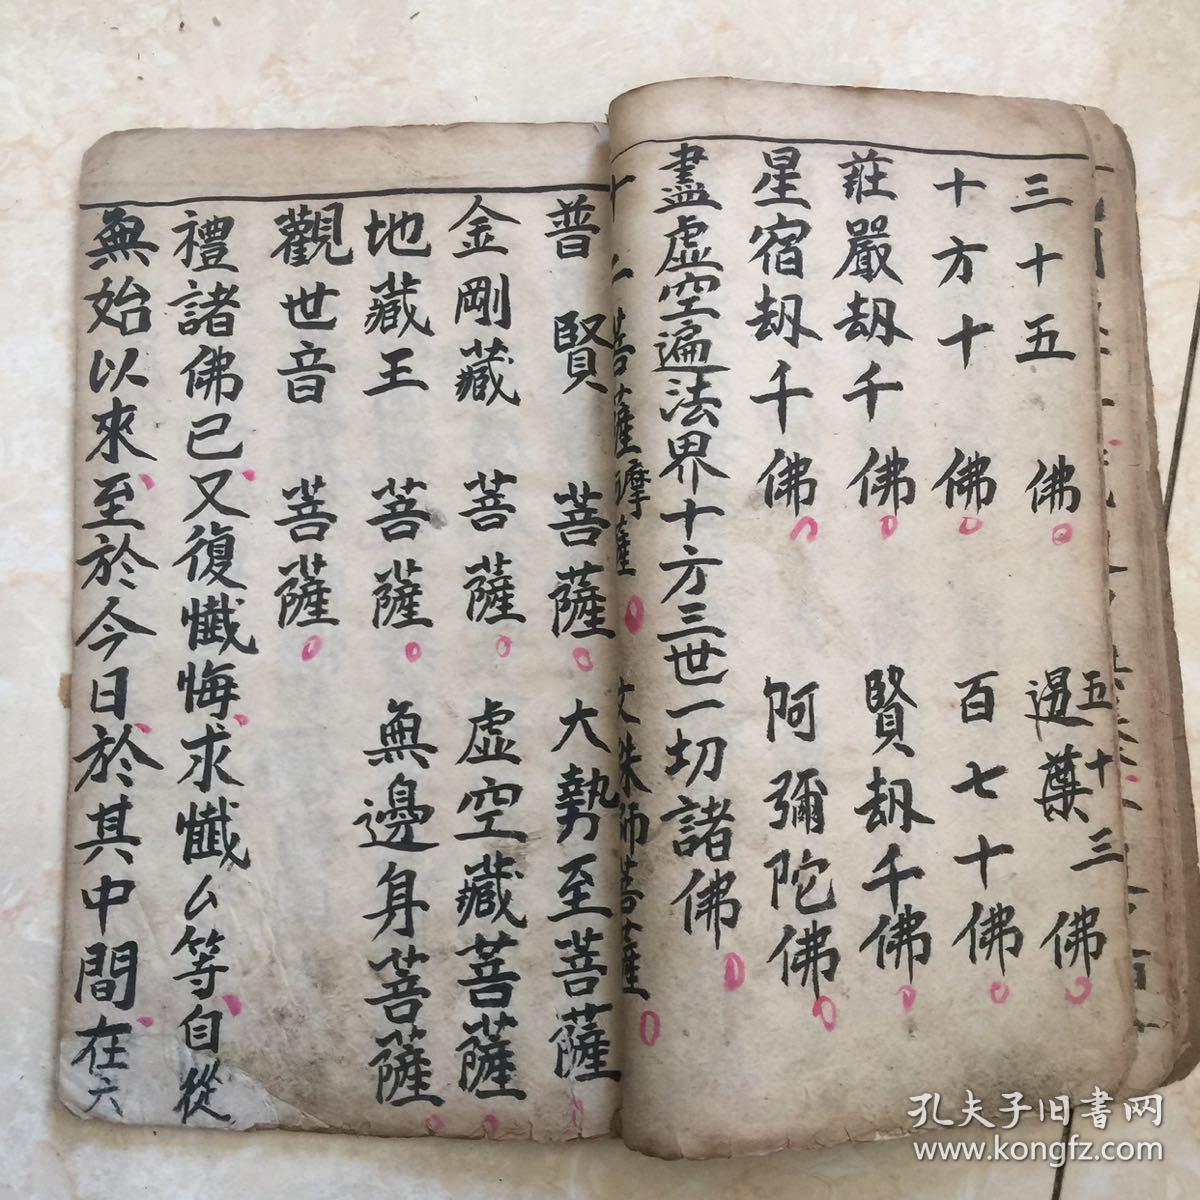 三十五佛 五十三佛
十方十佛 百七十佛
莊嚴劫千佛 賢劫千佛
星宿劫千佛 阿彌陀佛
盡虛空遍法界十方三世一切諸佛
十二菩薩摩訶薩 文殊師菩薩
普賢菩薩 大勢至菩薩
金剛藏菩薩 虛空藏菩薩
地藏王菩薩 無邊身菩薩
觀世音菩薩
禮諸佛已又復懺悔求懺厶等自從
無始以來至於今日於其中間在六
孔夫子旧書网
www.kongfz.com